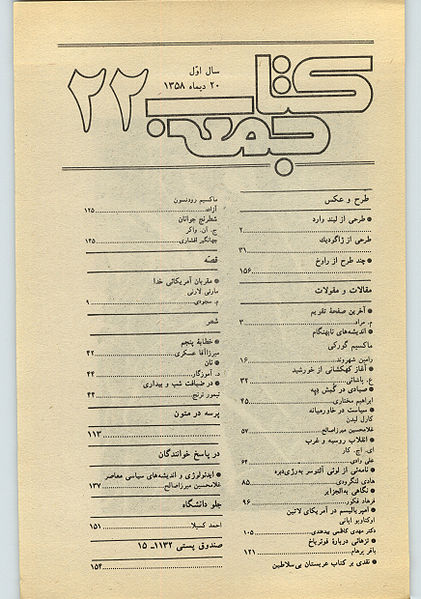 کتاب جمعه
۲۲
سال اوّل
۲۰ دیماه ۱۳۵۸
طرح و عکس
● طرحی از لیند وارد
۲
طرحی از زاگودیك
۳۱
● چند طرح از راوخ
۱۵۶
مقالات و مقولات
● آخرین صفحهٔ تقویم
م. مراد ۳
● اندیشه‌های نابهنگام
ماکسیم گورکی
رامین شهروند ۱۶
● آغاز کهکشانی از خورشید
ع. پاشائی ۳۴
● صیادی در گَمیش دپه
ابراهیم مختاری ۴۵
● سیاست در خاورمیانه
کارل لیدن
غلامحسین میرزاصالح ۵۷
● انقلاب روسیه و غرب
ای. اچ. کار
علی وادی ۶۴
● نامه‌ئی از لوئی آلتوسر به‌رژی‌دبره
هادی لنگرودی ۸۵
● نگاهی به‌الجزایر
فرهاد فکور ۹۶
● امپریالیسم در آمریکای لاتین
اوکتاویو ایانی
دکتر مهدی کاظمی بیدهندی ۱۰۵
● ترهاتی دربارهٔ فوئرباخ
باقر پرهام ۱۲۱
● نقدی بر کتاب عربستان بی‌سلاطین
ماکسیم رودنسون
آزاده ۱۲۵
شطرنج جوانان
ج. ان. واکر
جهانگیر افشاری ۱۳۵
قصّه
● مقربان آمریکائی خدا
مارتی لارنی
م. سجودی ۹
شعر
● خطابهٔ پنجم
میرزاآقا عسکری ۴۲
● نان
د. آموزگار ۴۴
● در ضیافت شب و بیداری
تیمور ترنج ۴۴
پرسه در متون
۱۱۳
در پاسخ خوانندگان
● ایدئولوژی و اندیشه‌های سیاسی معاصر
غلامحسین میرزاصالح ۱۳۷
جلو دانشگاه
احمد کسیلا ۱۵۱
صندوق پستی ۱۱۳۲ـ ۱۵
۱۵۴